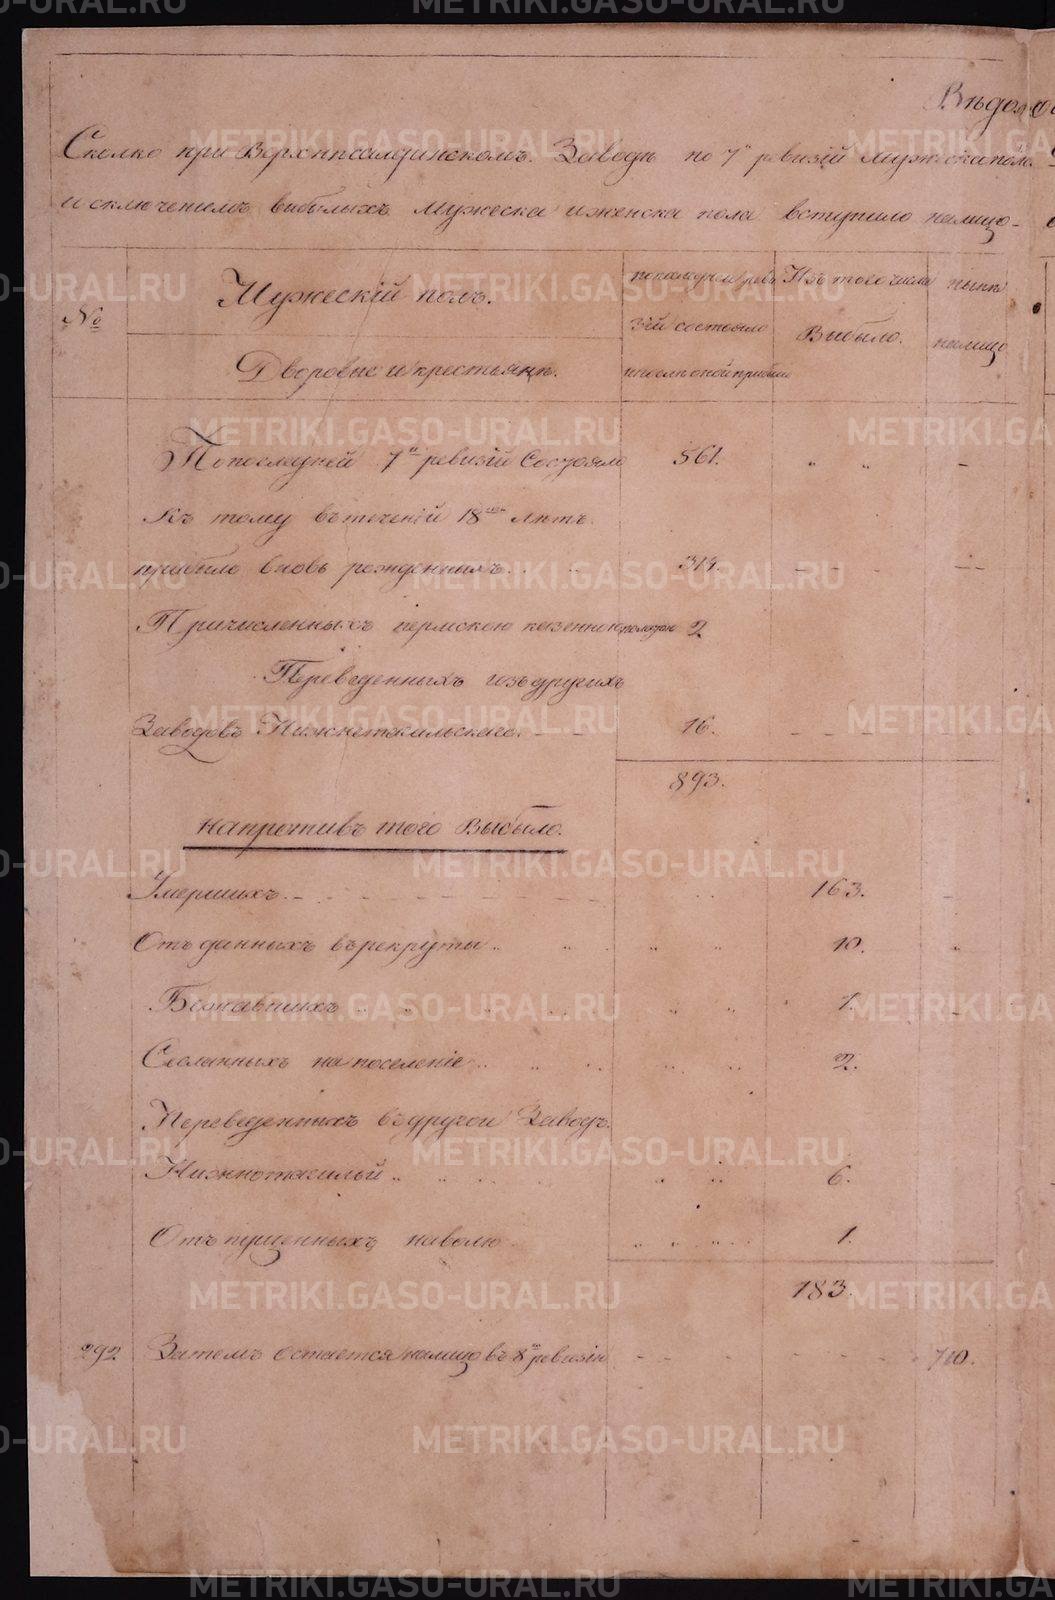 Вѣдом
Сколко при Верхнисалдинскомъ Заводѣ по 7й ревизiй Мужеска пола
исключениемъ выбылыхъ Мужеска иженска пола вступило налицо
№
Мужескiй полъ.
Дворовые и крестьянѣ.
попоследней реви
зiй состояло
ипослѣ оной прибыло
Изъ того числа
Выбыло.
нынѣ
налицо
Попоследней 7й ревизiй Состояло 561.
Къ тому втеченiй 18ти лѣтъ
прибыло вновь рожденныхъ. 314.
Причисленныхъ пермскою казенною палатою 2
Переведенныхъ изъ другихъ
Заводовъ Нижнетагильскаго. 16.
893.
Напротивъ того Выбыло.
Умершихъ 163.
Отъ данныхъ върекруты 10.
Бежавшихъ 1.
Сосланныхъ на поселенiе 2.
Переведенныхъ въдругой Заводъ
Нижнотагилый 6.
Отъ пущенныхъ наволю 1.
183.
292 Затемъ остается налицо въ 8ю ревизiю 710.
METRIKI.GASO-URAL.RU